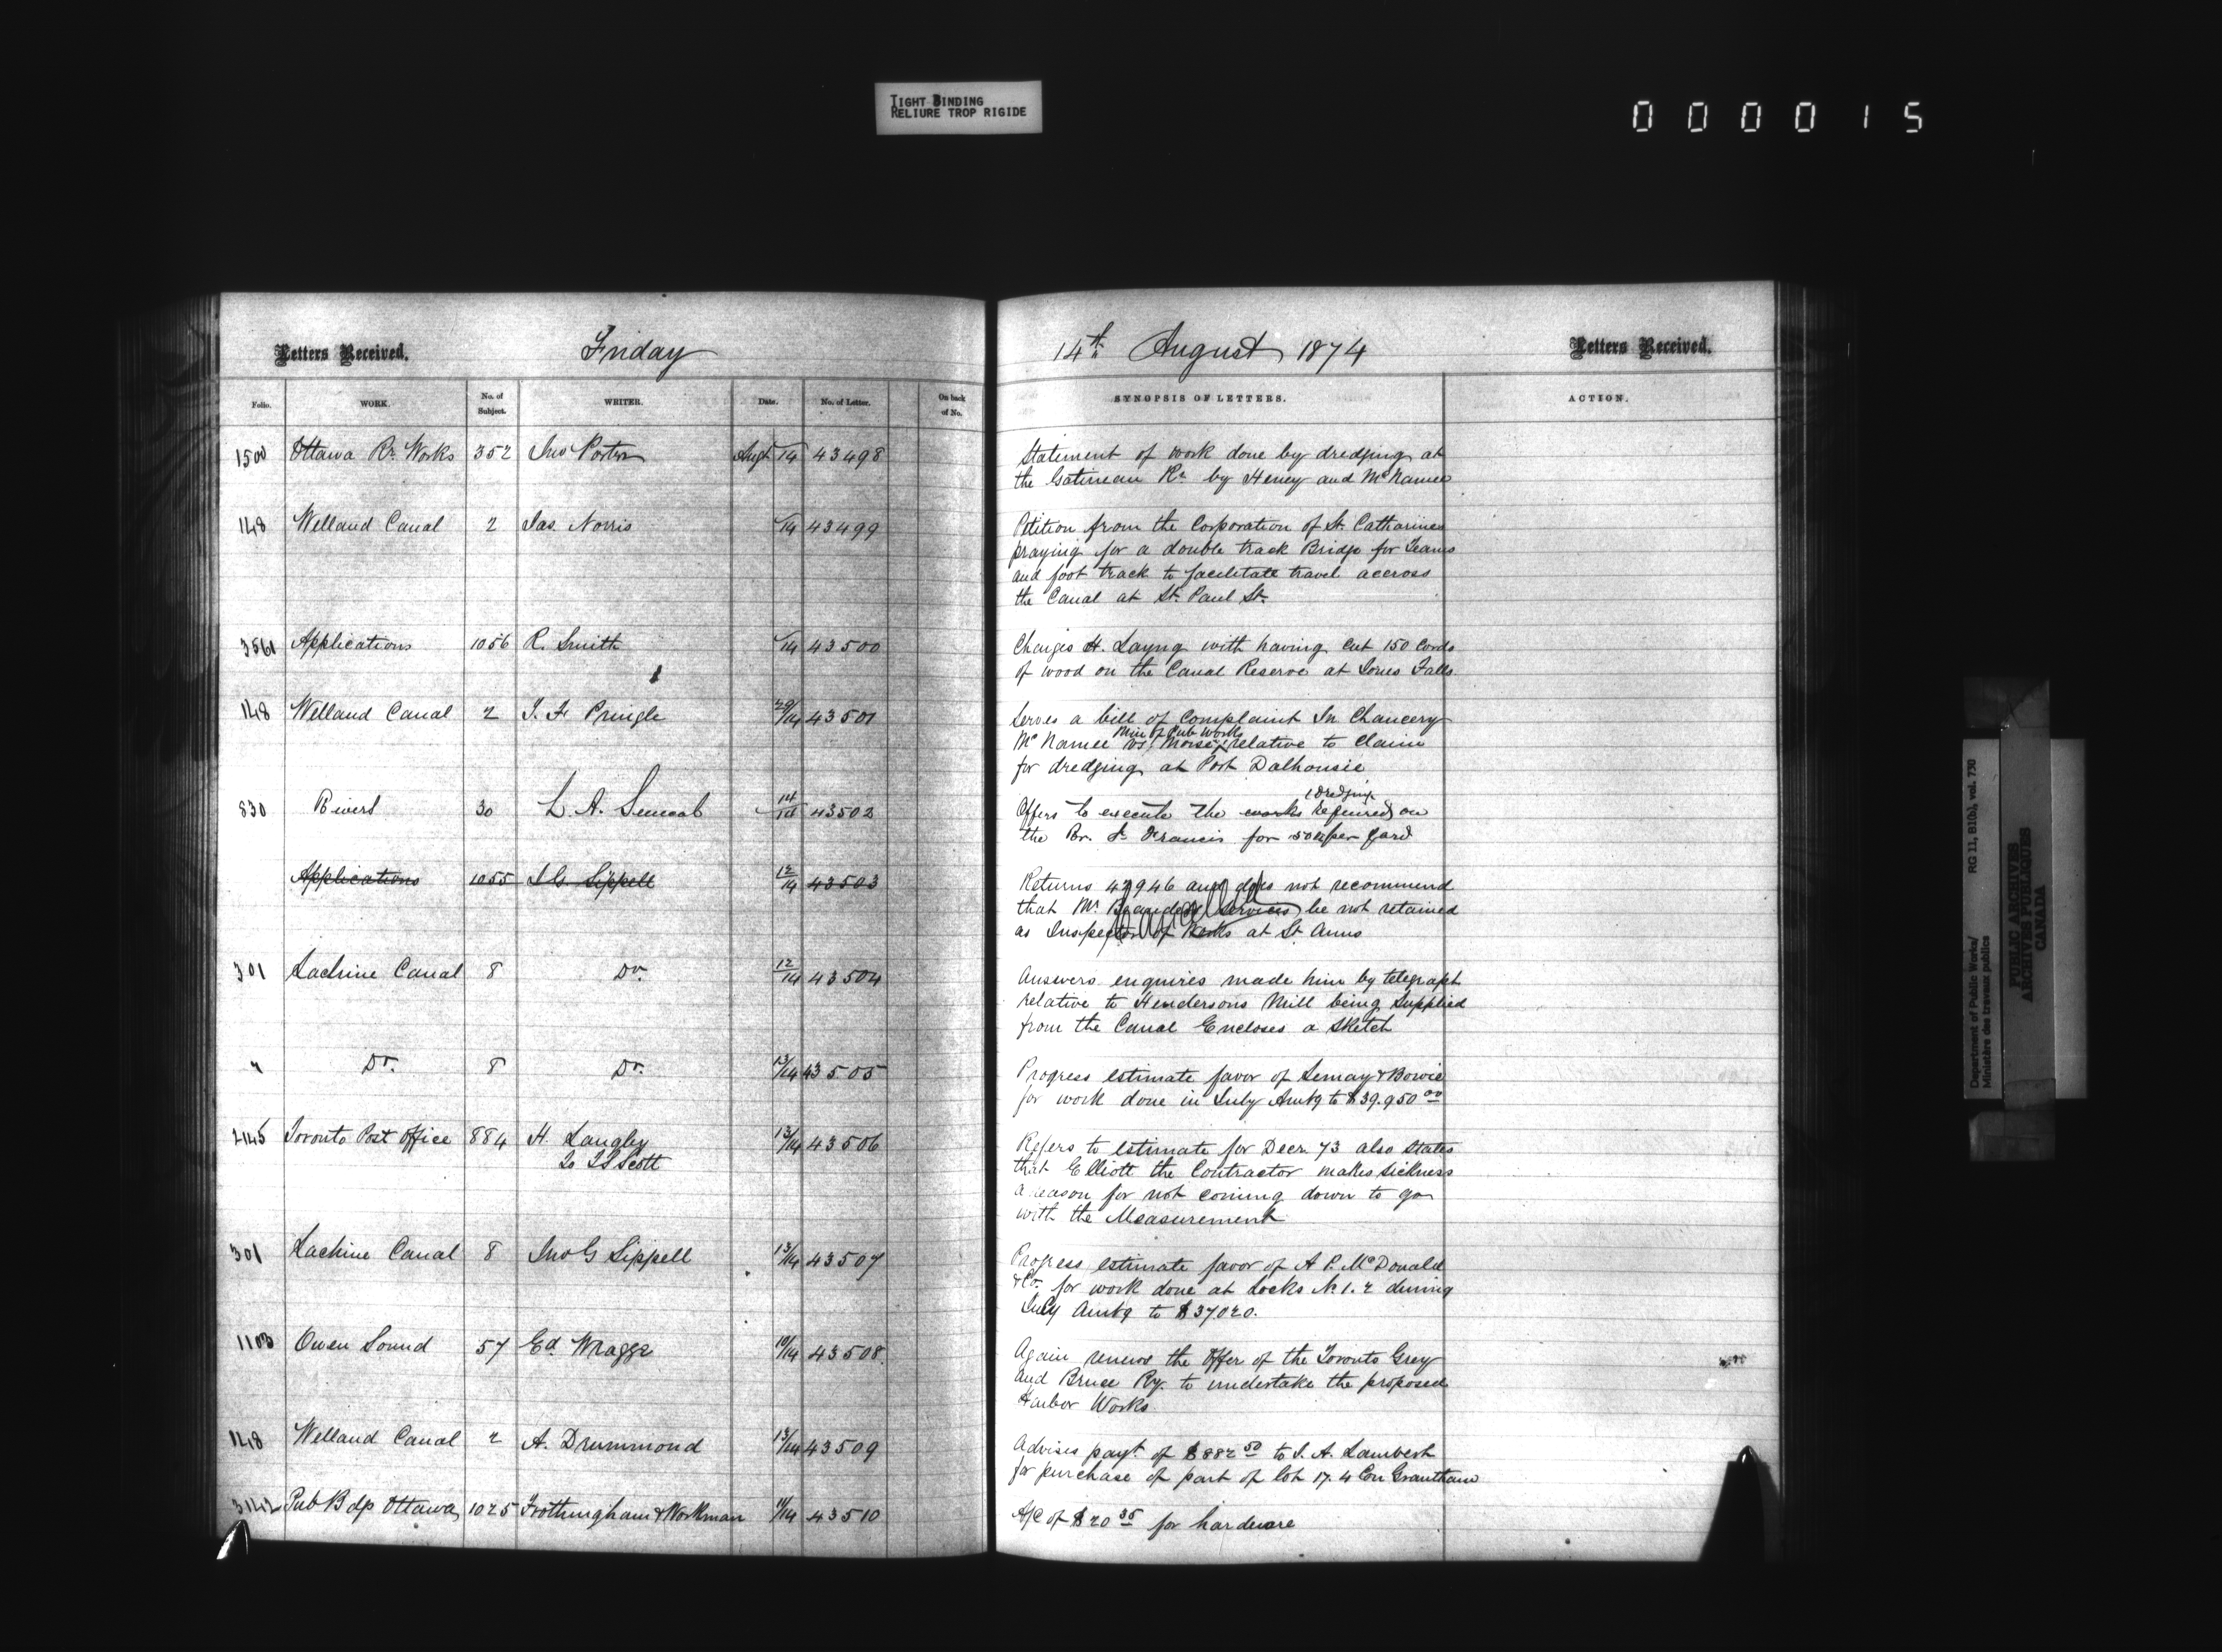 TIGHT BINDING
RELIURE TROP RIGIDE
000015
Letters Received. Friday
Folio. WORK. No. of Subject. WRITER. Date. No. of Letter. On back of No.
1500 Ottawa Rr. Works 352 Jno Porter Augt 14 43498
148 Welland Canal 2 Jas. Norris /14 43499
3561 Applications 1056 R. Smith /14 43500
148 Welland Canal 2 J. F. Pringle 29/14 43501
830 Rivers 30 L. A. Senecal 14/14 43502
Applications 1055 J G Sippell 12/14 43503
301 Lachine Canal 8 Do. 12/14 43504
" Do. 8 Do. 13/14 43505
2145 Toronto Post Office 884 H. Langley 13/14 43506
To T S Scott
301 Lachine Canal 8 Jno G Sippell 13/14 43507
1103 Owen Sound 57 Ed. Wragge 10/14 43508
148 Welland Canal 2 A. Drummond 13/14 43509
3142 Pub Bdgs Ottawa 1025 Frothingham & Workman 11/14 43510
14th August 1874 Letters Received.
SYNOPSIS OF LETTERS. ACTION.
Statement of work done by dredging at
the Gatineau Rr. by Heney and McNamee
Petition from the Corporation of St. Catharines
praying for a double track Bridge for Teams
and foot track to facilitate travel accross
the Canal at St. Paul St.
Charges H. Layng with having cut 150 Cords
of wood on the Canal Reserve at Jones Falls
Serves a bill of Complaint In Chancery
Min of Pub Works
McNamee vs. relative to claim
for dredging at Port Dalhousie
dredging
Offers to execute the works required on
the Rr. St Francis for per yard
Returns 42946 and does not recommend
that Mr. services be not retained
as Inspector of Works at St Anns
Cancelled
Answers enquires made him by telegraph
relative to Hendersons Mill being supplied
from the Canal Encloses a sketch
Progress estimate favor of Lemay & Bowie
for work done in July Amtg to $39.950 00
Refers to estimate for Decr. 73 also states
that Elliott the Contractor makes sickness
a reason for not coming down to go
with the Measurement
Progress estimate favor of A P. McDonald
& Co. for work done at Locks No 1. 2 during
July Amtg to $37020.
Again renews the Offer of the Toronto Grey
and Bruce Ry. to undertake the proposed
Harbor Works
Advises payt. of $882 50 to J. A. Lambert
for purchase of part of lot 17. 4 Con Grantham
A/C of $20 35 for hardware
Department of Public Works/
Ministère des travaux publics
RG 11, B1(b), vol. 730
PUBLIC ARCHIVES
ARCHIVES PUBLIQUES
CANADA